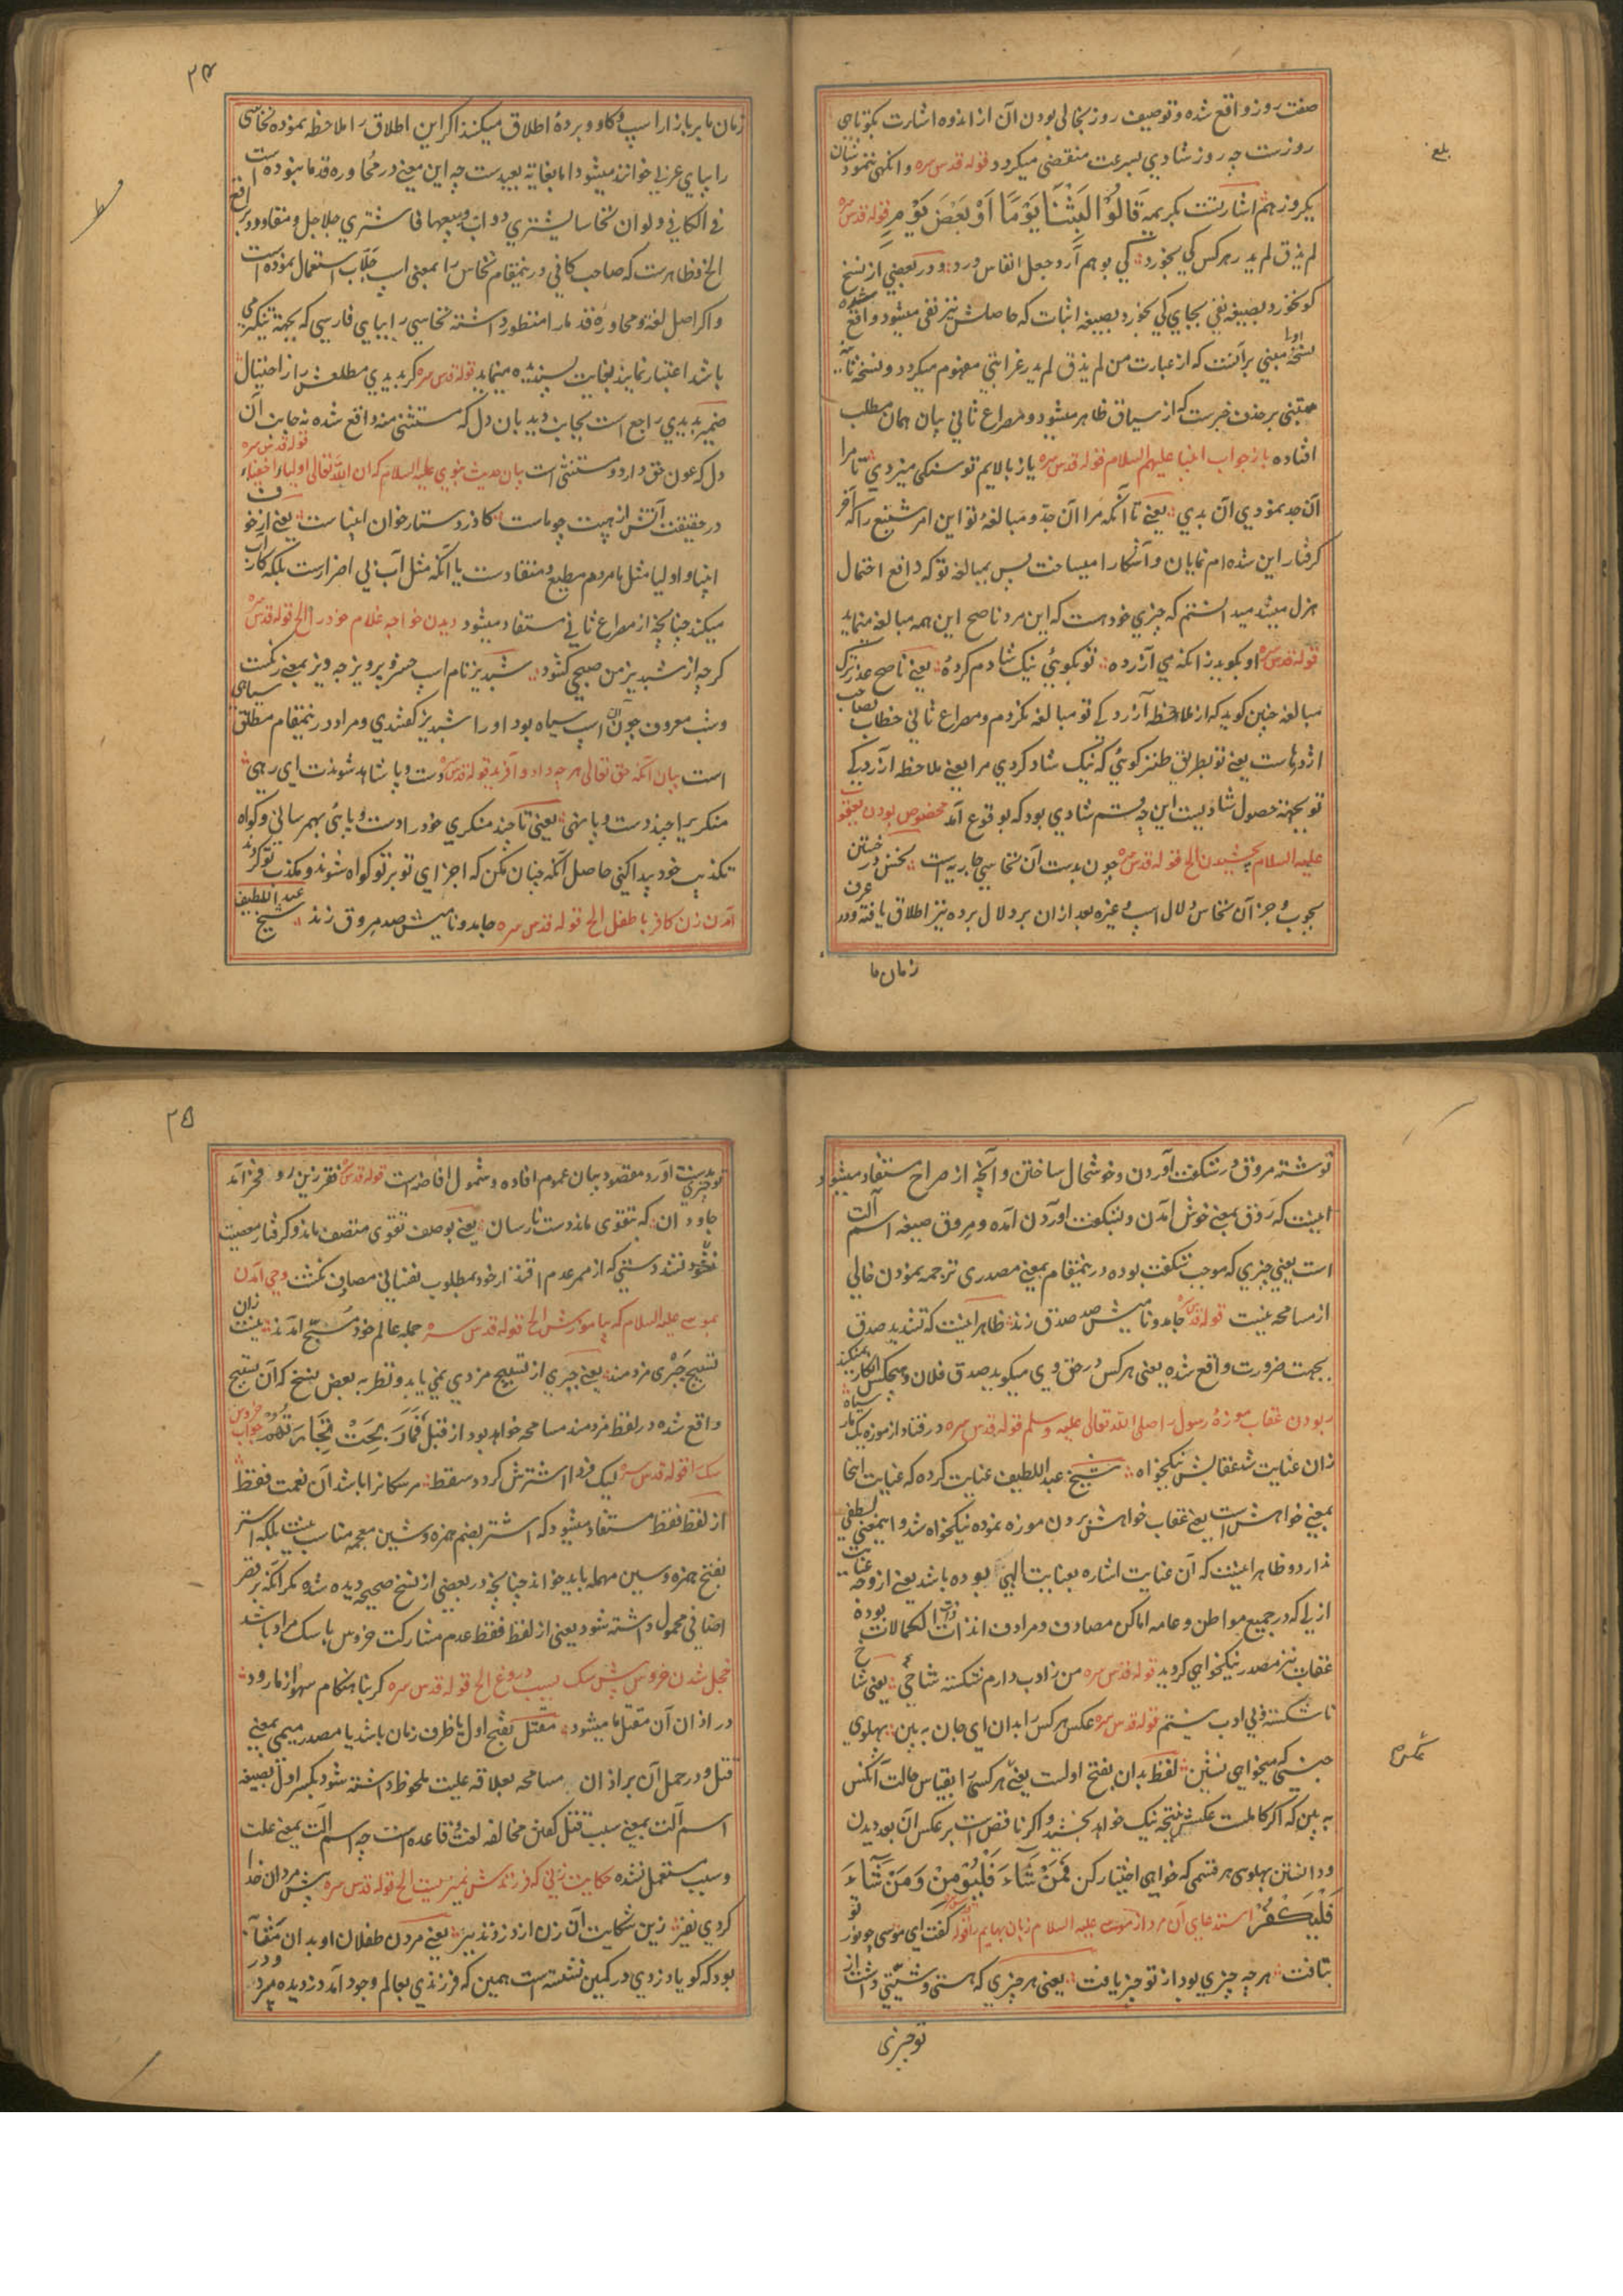 صفت روز واقع شده و توصیف روز بخالی بودن آن از اندوه اشارت بکوتاهی
روزست چه روز شادی بسرعت منقضی میکردد قوله قدس سره وانکهی ننمود شان
یکروز هم اشارتست بکریمه قَالُوْا لَبِثْنَا يَوْمًا اَوْ بَعْضَ يَوْمٍ قوله قدس سره
لم یذق لم یدر هر کس کی بخورد کی بوهم آرد جعل انفاس ورد ودر بعضی از نسخ
کو نخورد بصیغه نفی بجای کی بخورد بصیغه اثبات که حاصلش نیز نفی میشود واقع شده
نسخهٔ اولی مبنی برآنست که از عبارت من لم یذق لم یدر غرابتی مفهوم میکردد ونسخه ثانیه
مبتنی بر حذف خبرست که از سیاق ظاهر میشود و مصراع ثانی بیان همان مطلب
افتاده باز جواب انبیا علیهم السلام قوله قدس سره یاز بالایم تو سنکی میزدی تا مرا
آن جد نمودی آن بدی یعنی تا آنکه مرا آن جدّ و مبالغهٔ تو این امر شنیع را که آخر
کرفتار این شده ام نمایان و آشکارا میساخت پس بمبالغه تو که دافع احتمال
هزل میشد میدانستم که چیزی خود هست که این مرد ناصح این همه مبالغه مینماید
قوله قدس سره او بکوید زانکه می آزرده تو بکویئ نیک شادم کردهٔ یعنی ناصح عذر ترک
مبالغه چنین کوید که از ملاحظه آزردکی تو مبالغه نکردم و مصراع ثانی خطاب بصاحب
اژدهاست یعنی تو بطریق طنز کوئی که نیک شاد کردی مرا یعنی ملاحظه آزردکی
تو بجهته حصول شادیست این چه قسم شادی بود که بوقوع آمد مخصوص بودن یعقوب
علیه السلام بچشیدن الخ قوله قدس سره چون بدست آن نخاسی جاریه است نخس درختن
بچوب و جز آن نخاس دلال اسپ و غیره بعد ازان بر دلال برده نیز اطلاق یافته ودر عرف
زمان ما
زمان ما بر بازار اسپ و کاو و برده اطلاق میکنند اکر این اطلاق را ملاحظه نموده نخاسی
را بیای عربی خوانند میشود اما بغایة بعیدست چه این معنی در محاورهٔ قدما نبوده است
فی الکافی ولو ان نخاسا یشتری دواب ویبیعها فاشتری جلاجل و مقاود و براقع
الخ فظاهرست که صاحب کافی درینمقام نخاس را بمعنی اسپ جلّاب استعمال نموده است
و اکر اصل لغة و محاورهٔ قدما را منظور داشته نخاسی را بیای فارسی که بجهة تنکیر می
باشد اعتبار نمایند بغایت پسندیده مینماید قوله قدس سره کر بدیدی مطلعش را ز احتیال
ضمیر بدیدی راجع است بجانب دیدبان دل که مستثنی منه واقع شده نه جانب آن
دل که عون حق دارد و مستثنی است بیان حدیث نبوی علیه السلام که ان الله تعالی اولیاء اخفیاء قوله قدس سره
در حقیقت آتش از هیبت چو ماست کاندر دستارخوان انبیاست یعنی از خوف
انبیا و اولیا مثل ما مردم مطیع و منقادست یا آنکه مثل آب بی اضرارست بلکه کار آب
میکند چنانچه از مصراع ثانی مستفاد میشود دیدن خواجه غلام خود را الخ قوله قدس سره
کرچه از شبدیز من صبحی کشود شبدیز نام اسپ خسرو پرویز چه دیز بمعنی رنکست
وشب معروف چون آن اسپ سیاه بود او را شبدیز کفتندی و مراد درینمقام مطلق سیاهی
است بیان آنکه حق تعالی هر چه داد و آفرید قوله قدس سره دست و پا شاهد شوندت ای رهی
منکریرا چند دست و پا نهی یعنی تا چند منکری خود را دست و پائی بهم رسانی و کواه
تکذیب خود پیدا کنی حاصل آنکه چنان مکن که اجزای تو بر تو کواه شوند و مکذب تو کردند
آمدن زن کافر با طفل الخ قوله قدس سره جامد و نامیش صد مروق زند شیخ عبد اللطیف
۲۴
نوشته مروق در شکفت آوردن و خوشحال ساختن و آنچه از صراح مستفاد میشود
اینست که رَوْق بمعنی خوش آمدن و بشکفت آوردن آمده و مروق صیغه اسم آلت
است یعنی چیزی که موجب شکفت بوده درینمقام بمعنی مصدری ترجمه نمودن خالی
از مسامحه نیست قوله قدس سره جامد و نامیش صد صدق زند ظاهر اینست که تشدید صدق
بجهت ضرورت واقع شده یعنی هر کس در حق وی میکوید صدق فلان و هیچکس انکار نمیکند
ربودن عقاب موزهٔ رسول را صلی الله تعالی علیه وسلم قوله قدس سره در فتاد از موزه یک مار سیاه
زان عنایت شد عقابش نیکخواه شیخ عبد اللطیف عنایت کرده که عنایت اینجا
بمعنی خواهش است یعنی عقاب خواهش بردن موزه نموده نیکخواه شد و اینمعنی لطفی
ندارد و ظاهر اینست که آن عنایت اشاره بعنایت الهی بوده باشد یعنی از وجه عنایت
ازلی که در جمیع مواطن و عامه اماکن مصادف و مرادف آن ذات الکمالات بوده
عقاب نیز مصدر نیکخواهی کردید قوله قدس سره من ز ادب دارم شکسته شاخیٔ یعنی شاخ
ناشکسته و بی ادب نیستم قوله قدس سره عکس هر کس را بدان ای جان ببین پهلوی
جنسی که میخواهی نشین لفظ بدان بفتح اولست یعنی هر کسی را بقیاس حالت آنکس
ببین که اکر کاملست عکسش نتیجه نیک خواهد بخشید و اکر ناقص است بر عکس آن بعد دیدن
و دانستن پهلوی هر قسمی که خواهی اختیار کن فَمَنْ شَآءَ فَلْيُؤْمِنْ وَمَنْ شَآءَ
فَلْيَكْفُرْ استدعای آن مرد از موسی علیه السلام زبان بهایم را قوله قدس سره کفت ای موسی چو نور تو
بتافت هر چه چیزی بود از تو چیز یافت یعنی هر چیزی که هستی و شیئیتی داشت از
تو چیزی
تو چیزی بدست آورد مقصود بیان عموم افاده و شمول افاضه است قوله قدس سره فقر زین رو فخر آمد
جاودان که بتقوی ماند دست نارسان یعنی بوصف تقوی متصف ماند و کرفتار معصیت
نشود دستی که از ممر عدم اقتدار خود بمطلوب نفسانی مصادف نکشت وحی آمدن
بموسی علیه السلام که بیاموزش الخ قوله قدس سره جمله عالم خود مسبح آمدند نیست زان
تسبیح جبری مزدمند یعنی جبری از تسبیح مزدی نمی یابد و نظر به بعض نسخ که آن تسبیح
واقع شده در لفظ مزدمند مسامحه خواهد بود از قبیل فَمَا رَبِحَتْ تِجَارَتُهُمْ جواب خروس
سک را قوله قدس سره لیک فردا اشترش کردد سقط مر سکانرا باشد آن نعمت فقط
از لفظ فقط مستفاد میشود که اشتر بضم همزه و شین معجمه مناسب نیست بلکه استر
بفتح همزه و سین مهمله باید خواند چنانچه در بعضی از نسخ صحیحه دیده شده مکر آنکه بر قصر
اضافی محمول داشته شود یعنی از لفظ فقط عدم مشارکت خروس با سک مراد باشد
خجل شدن خروس پیش سک بسبب دروغ الخ قوله قدس سره کر بنا هنکام سهو از ما رود
در اذان آن مقتل ما میشود مقتل بفتح اول یا ظرف زمان باشد یا مصدر میمی بمعنی
قتل و در حمل آن بر اذان مسامحه بعلاقه علیت ملحوظ داشته شود بکسر اول بصیغه
اسم آلت بمعنی سبب قتل کفتن مخالف لغت و قاعده است چه اسم آلت بمعنی علت
و سبب مستعمل نشده حکایت زنی که فرزندش نمیزیست الخ قوله قدس سره پیش مردان خدا
کردی نفیر زین شکایت آن زن از درد نذیر یعنی مردن طفلان او بدان مثابه
بود که کویا دزدی در کمین نشسته است همین که فرزندی بعالم وجود آمد دزدیده میبرد ودر
۲۵